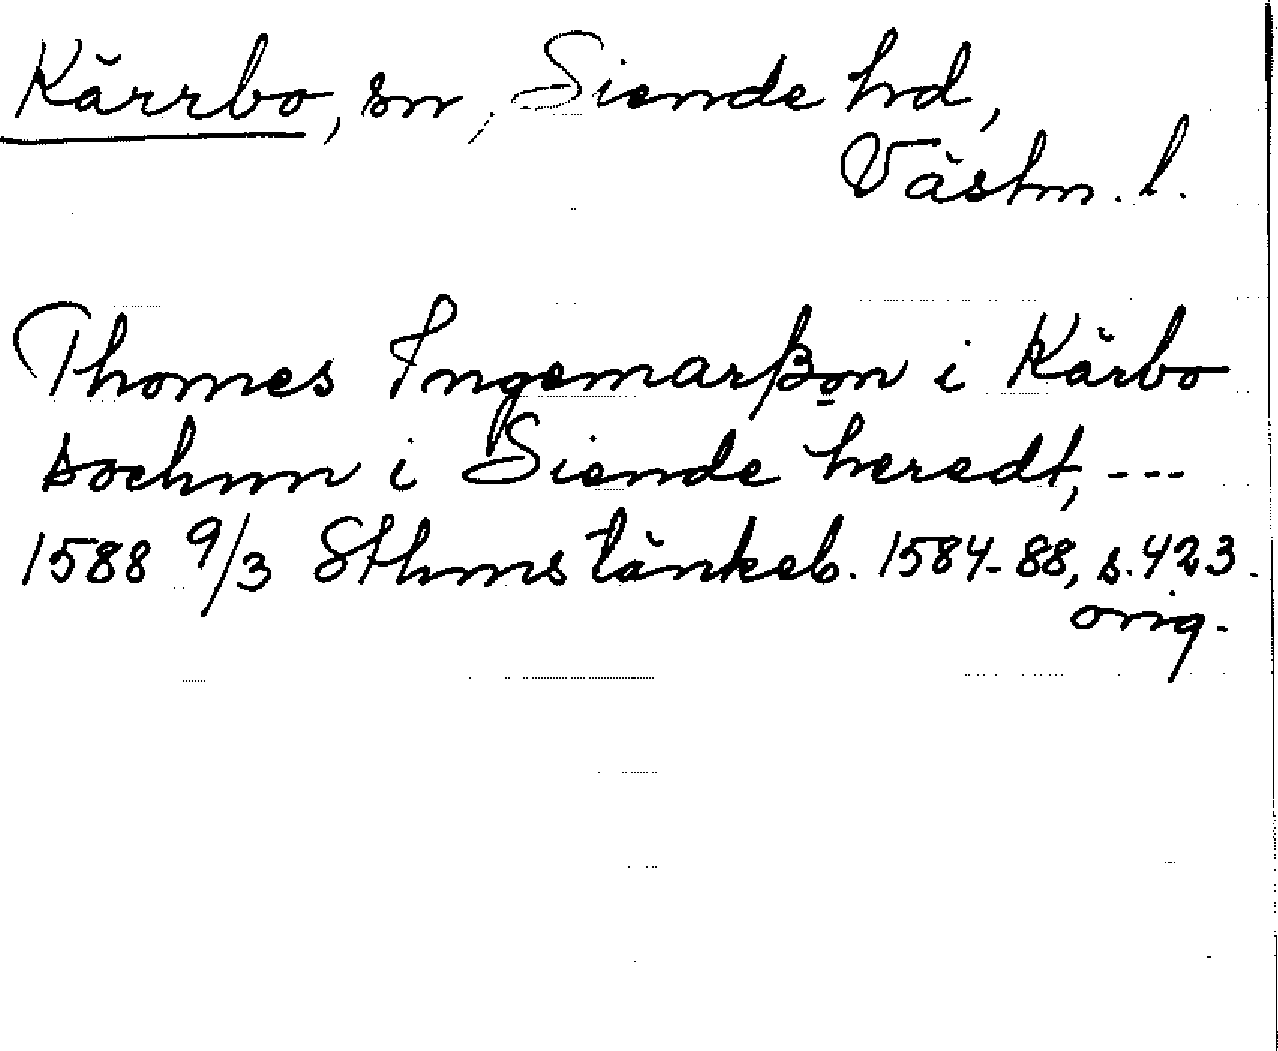 Kärrbo, sn, Siende hd,
Västm. l.
Thomes Ingemarßon i Kärbo
sochnn i Siende heredt, ---
1588 9/3 Sthms tänkeb. 1584-88, s. 423.
orig.